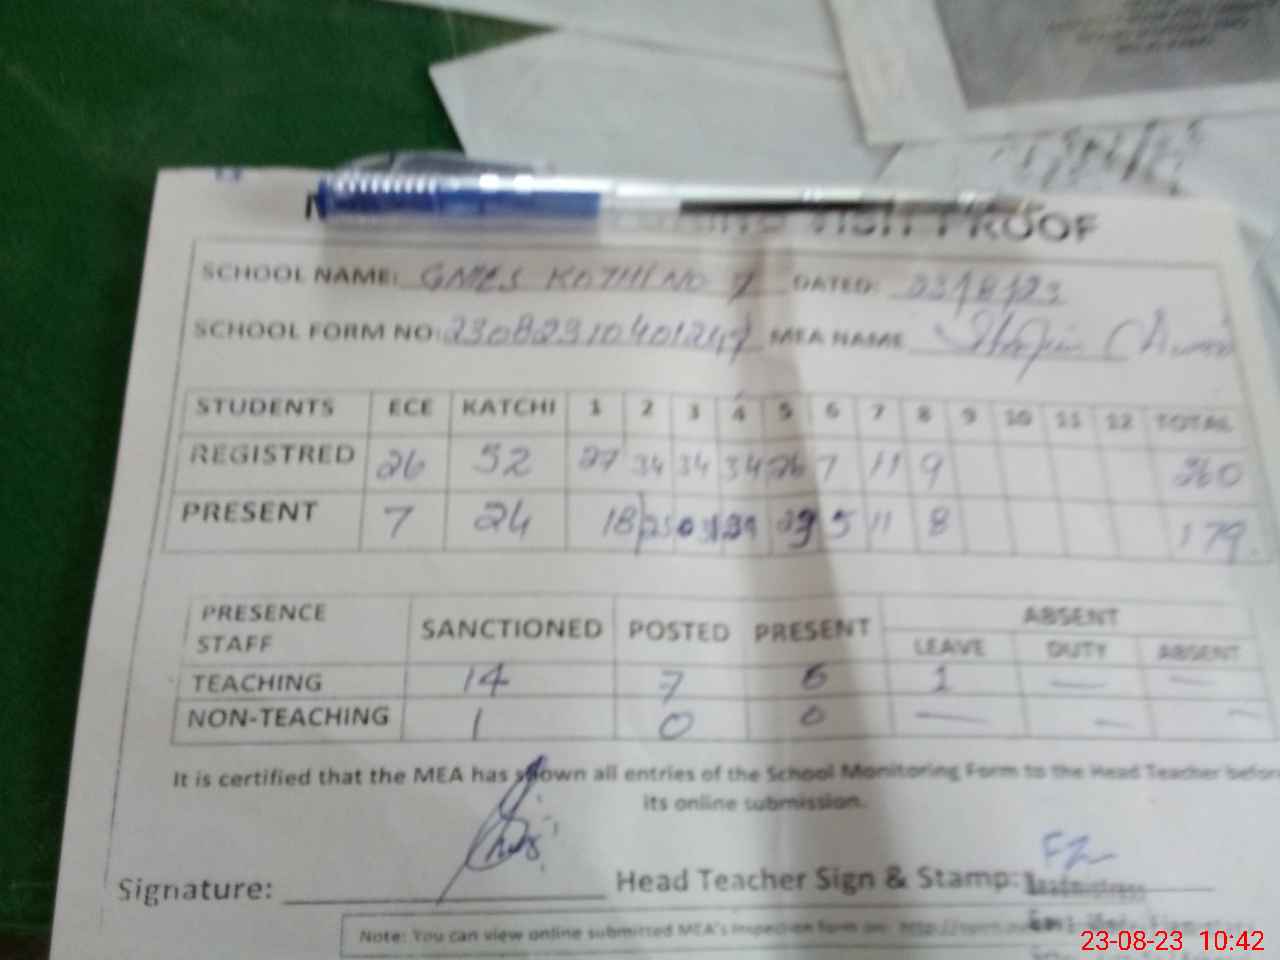 VISIT PROOF
SCHOOL NAME: GMES KOTHI NO 7 DATED: 23/8/23
SCHOOL FORM NO: MEA NAME
STUDENTS ECE KATCHI 1 2 3 4 5 6 7 8 9 10 11 12 TOTAL
REGISTRED 26 52 27 34 34 34 26 7 11 9 260
PRESENT 7 24 18 5 11 8 179
PRESENCE STAFF SANCTIONED POSTED PRESENT ABSENT
LEAVE DUTY ABSENT
TEACHING 14 7 6 1 — —
NON-TEACHING 1 0 0 — — —
It is certified that the MEA has shown all entries of the School Monitoring Form to the Head Teacher before
its online submission.
Signature: Head Teacher Sign & Stamp:
Note: You can view online submitted MEA's inspection form on:
23-08-23 10:42